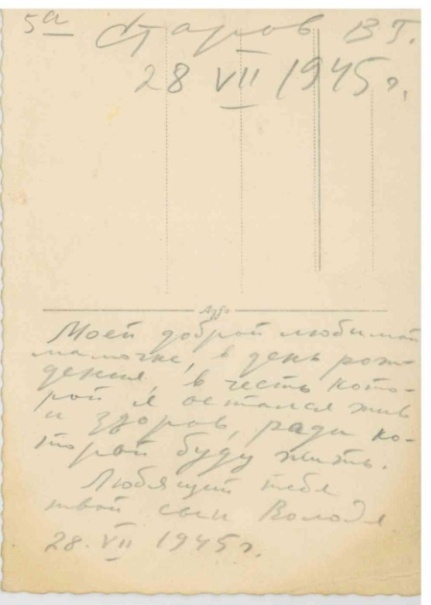 5а Старов В Г.
28 VII 1945 г.
Моей доброй любимой
мамочке, в день рож-
дения, в честь кото-
рой я остался жив
и здоров, ради ко-
торой буду жить.
Любящий тебя
твой сын Володя
28. VII 1945 г.